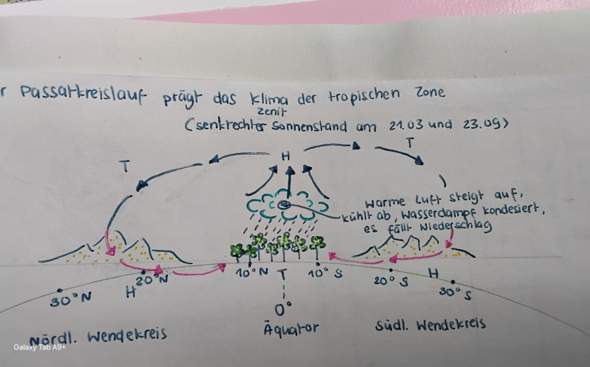 r Passatkreislauf prägt das Klima der tropischen Zone
Zenit
(senkrechter Sonnenstand am 21.03 und 23.09)
H
T
T
Warme Luft steigt auf,
kühlt ab, Wasserdampf kondesiert,
es fällt Niederschlag
30°N
H
20°N
10°N
T
10°S
20°S
H
30°S
0°
Nördl. Wendekreis
Äquator
Südl. Wendekreis
Galaxy Tab A9+